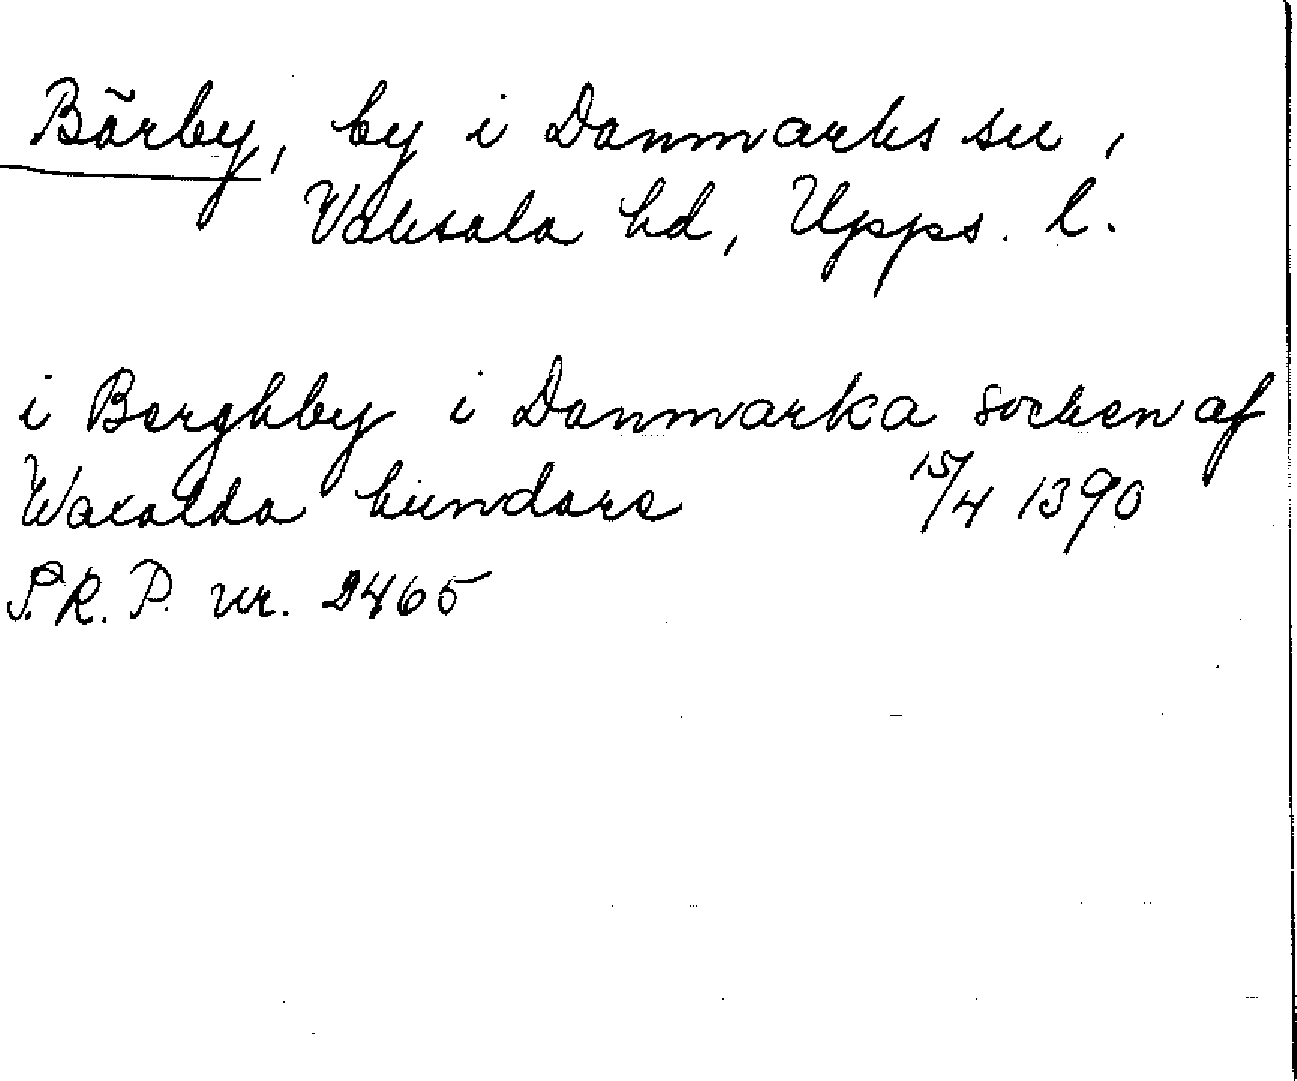 Bärby, by i Danmarks sn,
Vaksala hd, Upps. l.
i Berghby i Danmarka sochen af
Waxalda hundare 15/4 1390
S.R.P. nr. 2465